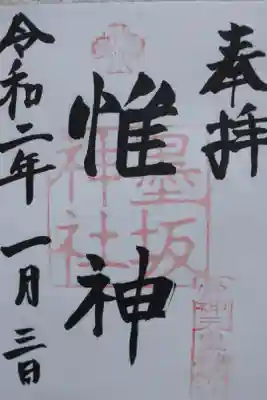 奉拝
惟神
墨坂神社
令和二年一月三日